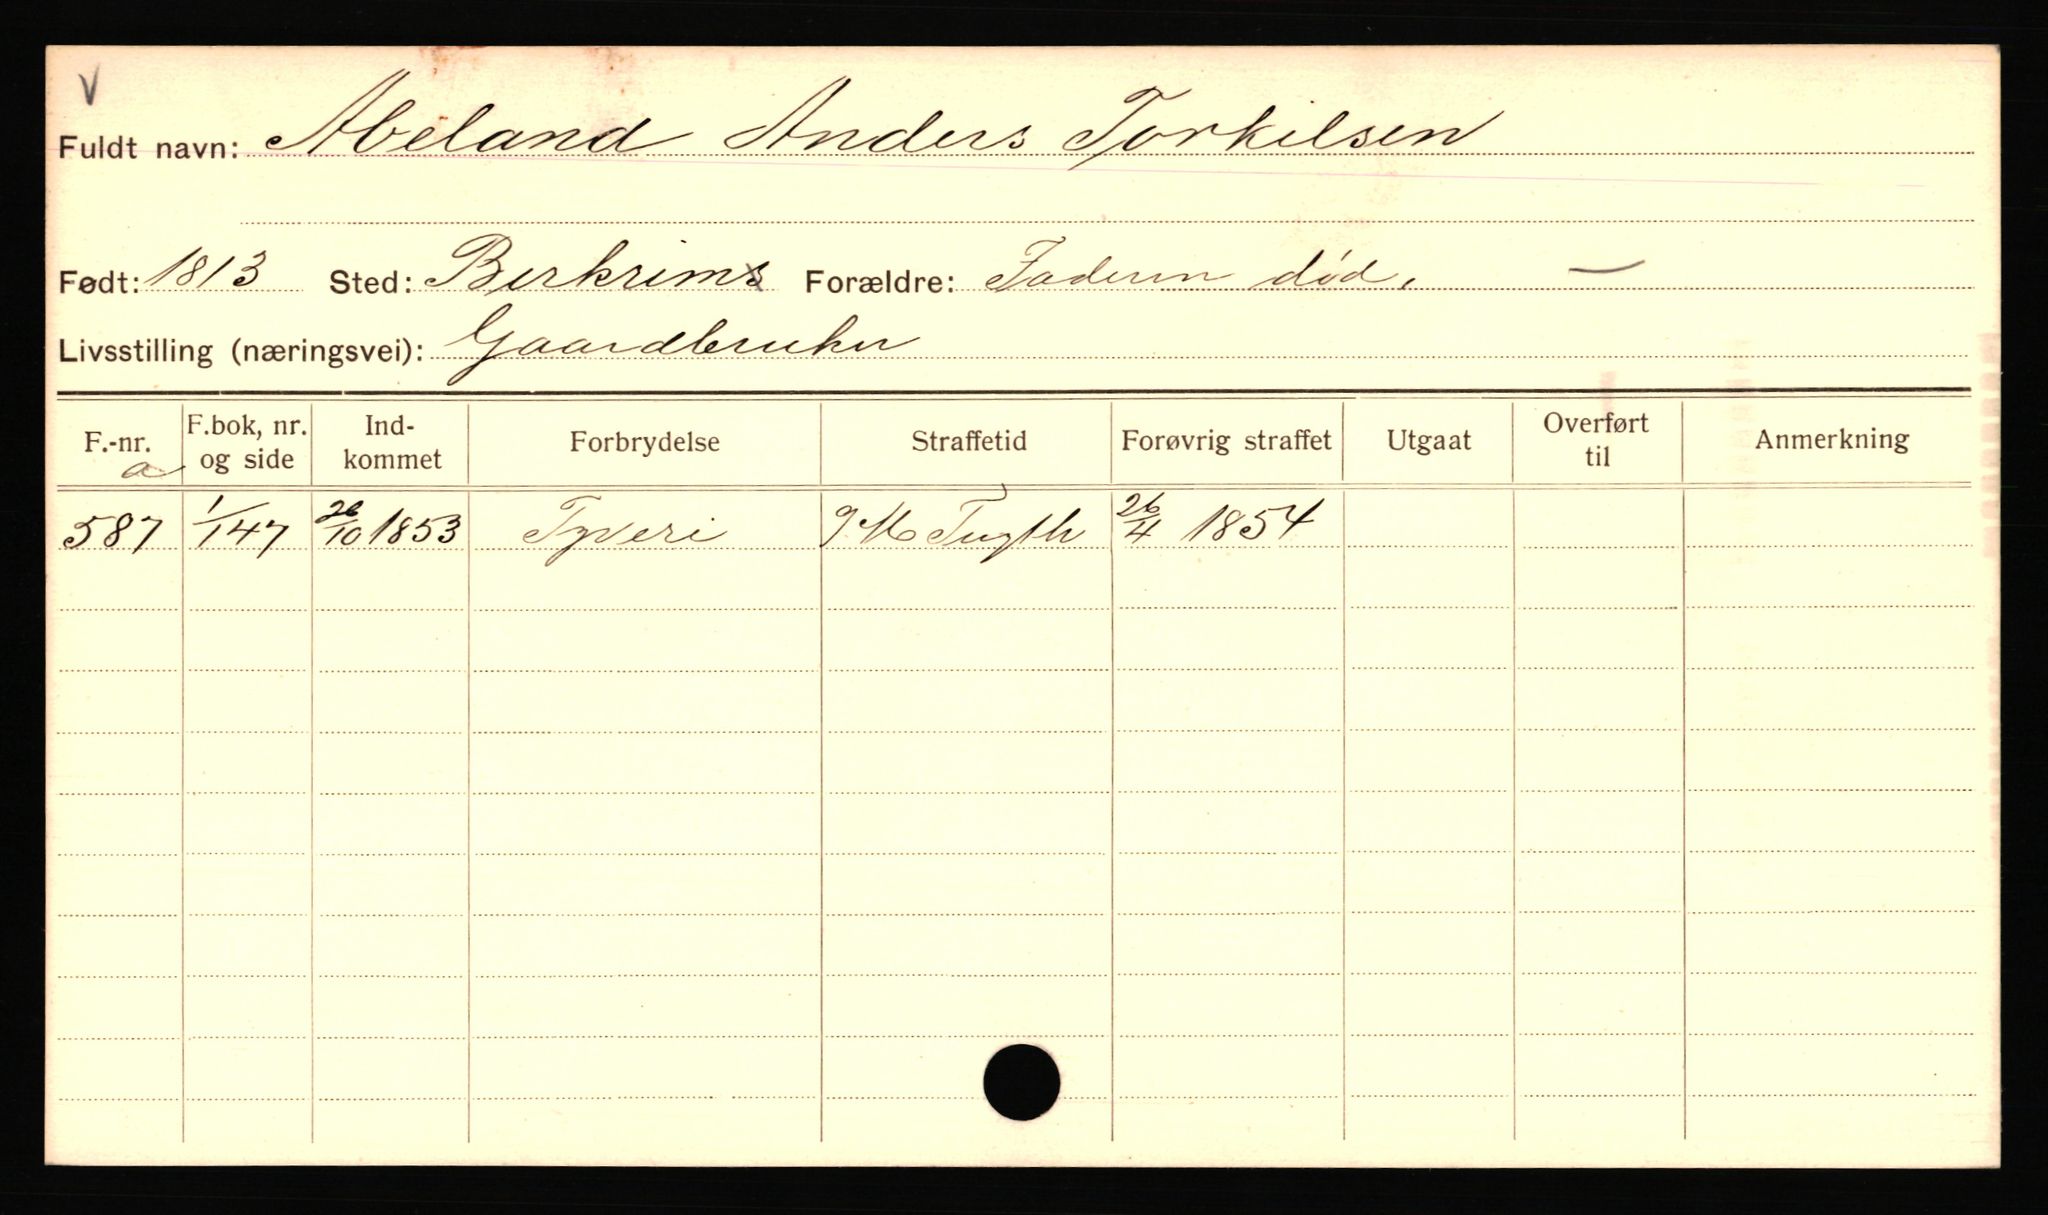 V
Fuldt navn: Abeland Anders Torkilsen
Født: 1813 Sted: Birkrims Forældre: Faderen død, —
Livsstilling (næringsvei): Gaardbruker
F.-nr. F.bok, nr. og side Ind-kommet Forbrydelse Straffetid Forøvrig straffet Utgaat Overført til Anmerkning
a
587 1/147 26/10 1853 Tyveri M Tugth 26/4 1854